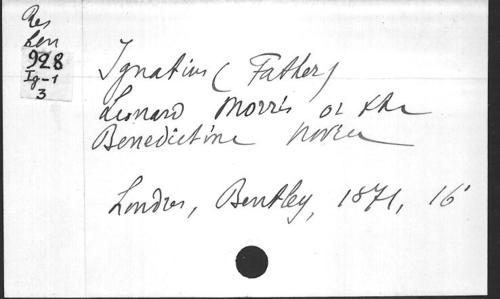 Res
Ben
928
Ig-1
3
Ignatius (Father)
Leonard Morris or the
Benedictine novice
Londres, Bentley, 1871, 16°